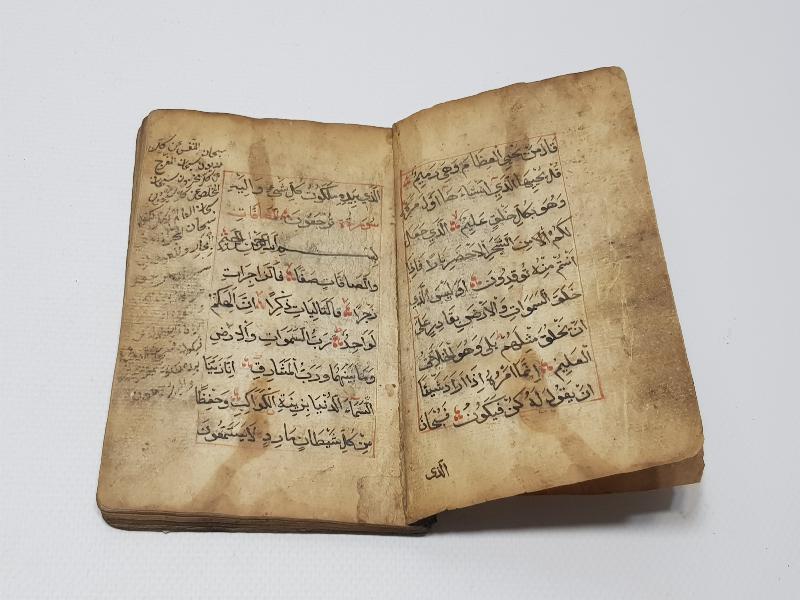 قال من يحيي العظام وهي رميم
قل يحييها الذي انشاها اول مرة
وهو بكل خلق عليم الذي جعل
لكم من الشجر الاخضر نارا فاذا
انتم منه توقدون اوليس الذي
خلق السموات والارض بقادر على
ان يخلق مثلهم بلى وهو الخلاق
العليم انما امره اذا اراد شيئا
ان يقول له كن فيكون فسبحان
الذي
الذي بيده ملكوت كل شيء واليه
سورة ترجعون الصافات
بسم الله الرحمن الرحيم
والصافات صفا فالزاجرات
زجرا فالتاليات ذكرا ان الهكم
لواحد رب السموات والارض
وما بينهما ورب المشارق انا زينا
السماء الدنيا بزينة الكواكب وحفظا
من كل شيطان مارد لا يسمعون
سبحان المنفس عن كل
مديون سبحان المفرج
عن كل محزون سبحان
المخلص عن كل مسجون
سبحان العالم